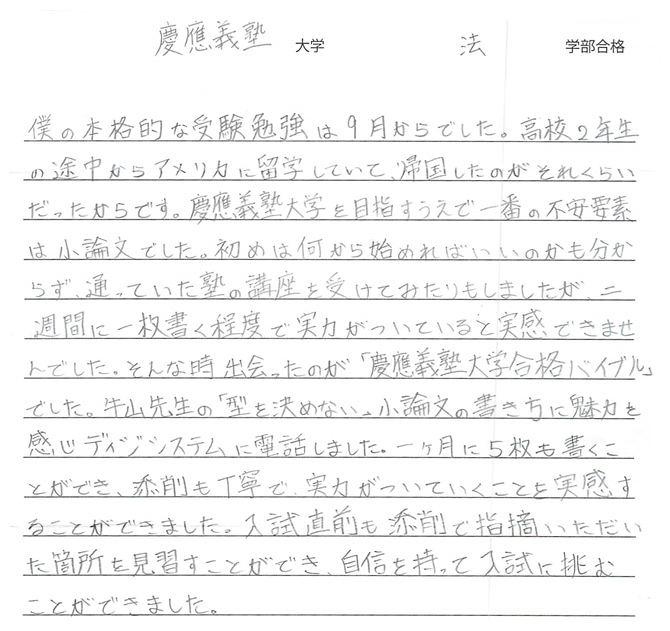 慶應義塾 大学 法 学部合格
僕の本格的な受験勉強は9月からでした。高校2年生
の途中からアメリカに留学していて、帰国したのがそれくらい
だったからです。慶應義塾大学を目指すうえで一番の不安要素
は小論文でした。初めは何から始めればいいのかも分か
らず、通っていた塾の講座を受けてみたりもしましたが、二
週間に一枚書く程度で実力がついていると実感できませ
んでした。そんな時出会ったのが「慶應義塾大学合格バイブル」
でした。牛山先生の「型を決めない」小論文の書き方に魅力を
感じディジシステムに電話しました。一ヶ月に5枚も書くこ
とができ、添削も丁寧で、実力がついていくことを実感す
ることができました。入試直前も添削で指摘いただい
た箇所を見習すことができ、自信を持って入試に挑む
ことができました。